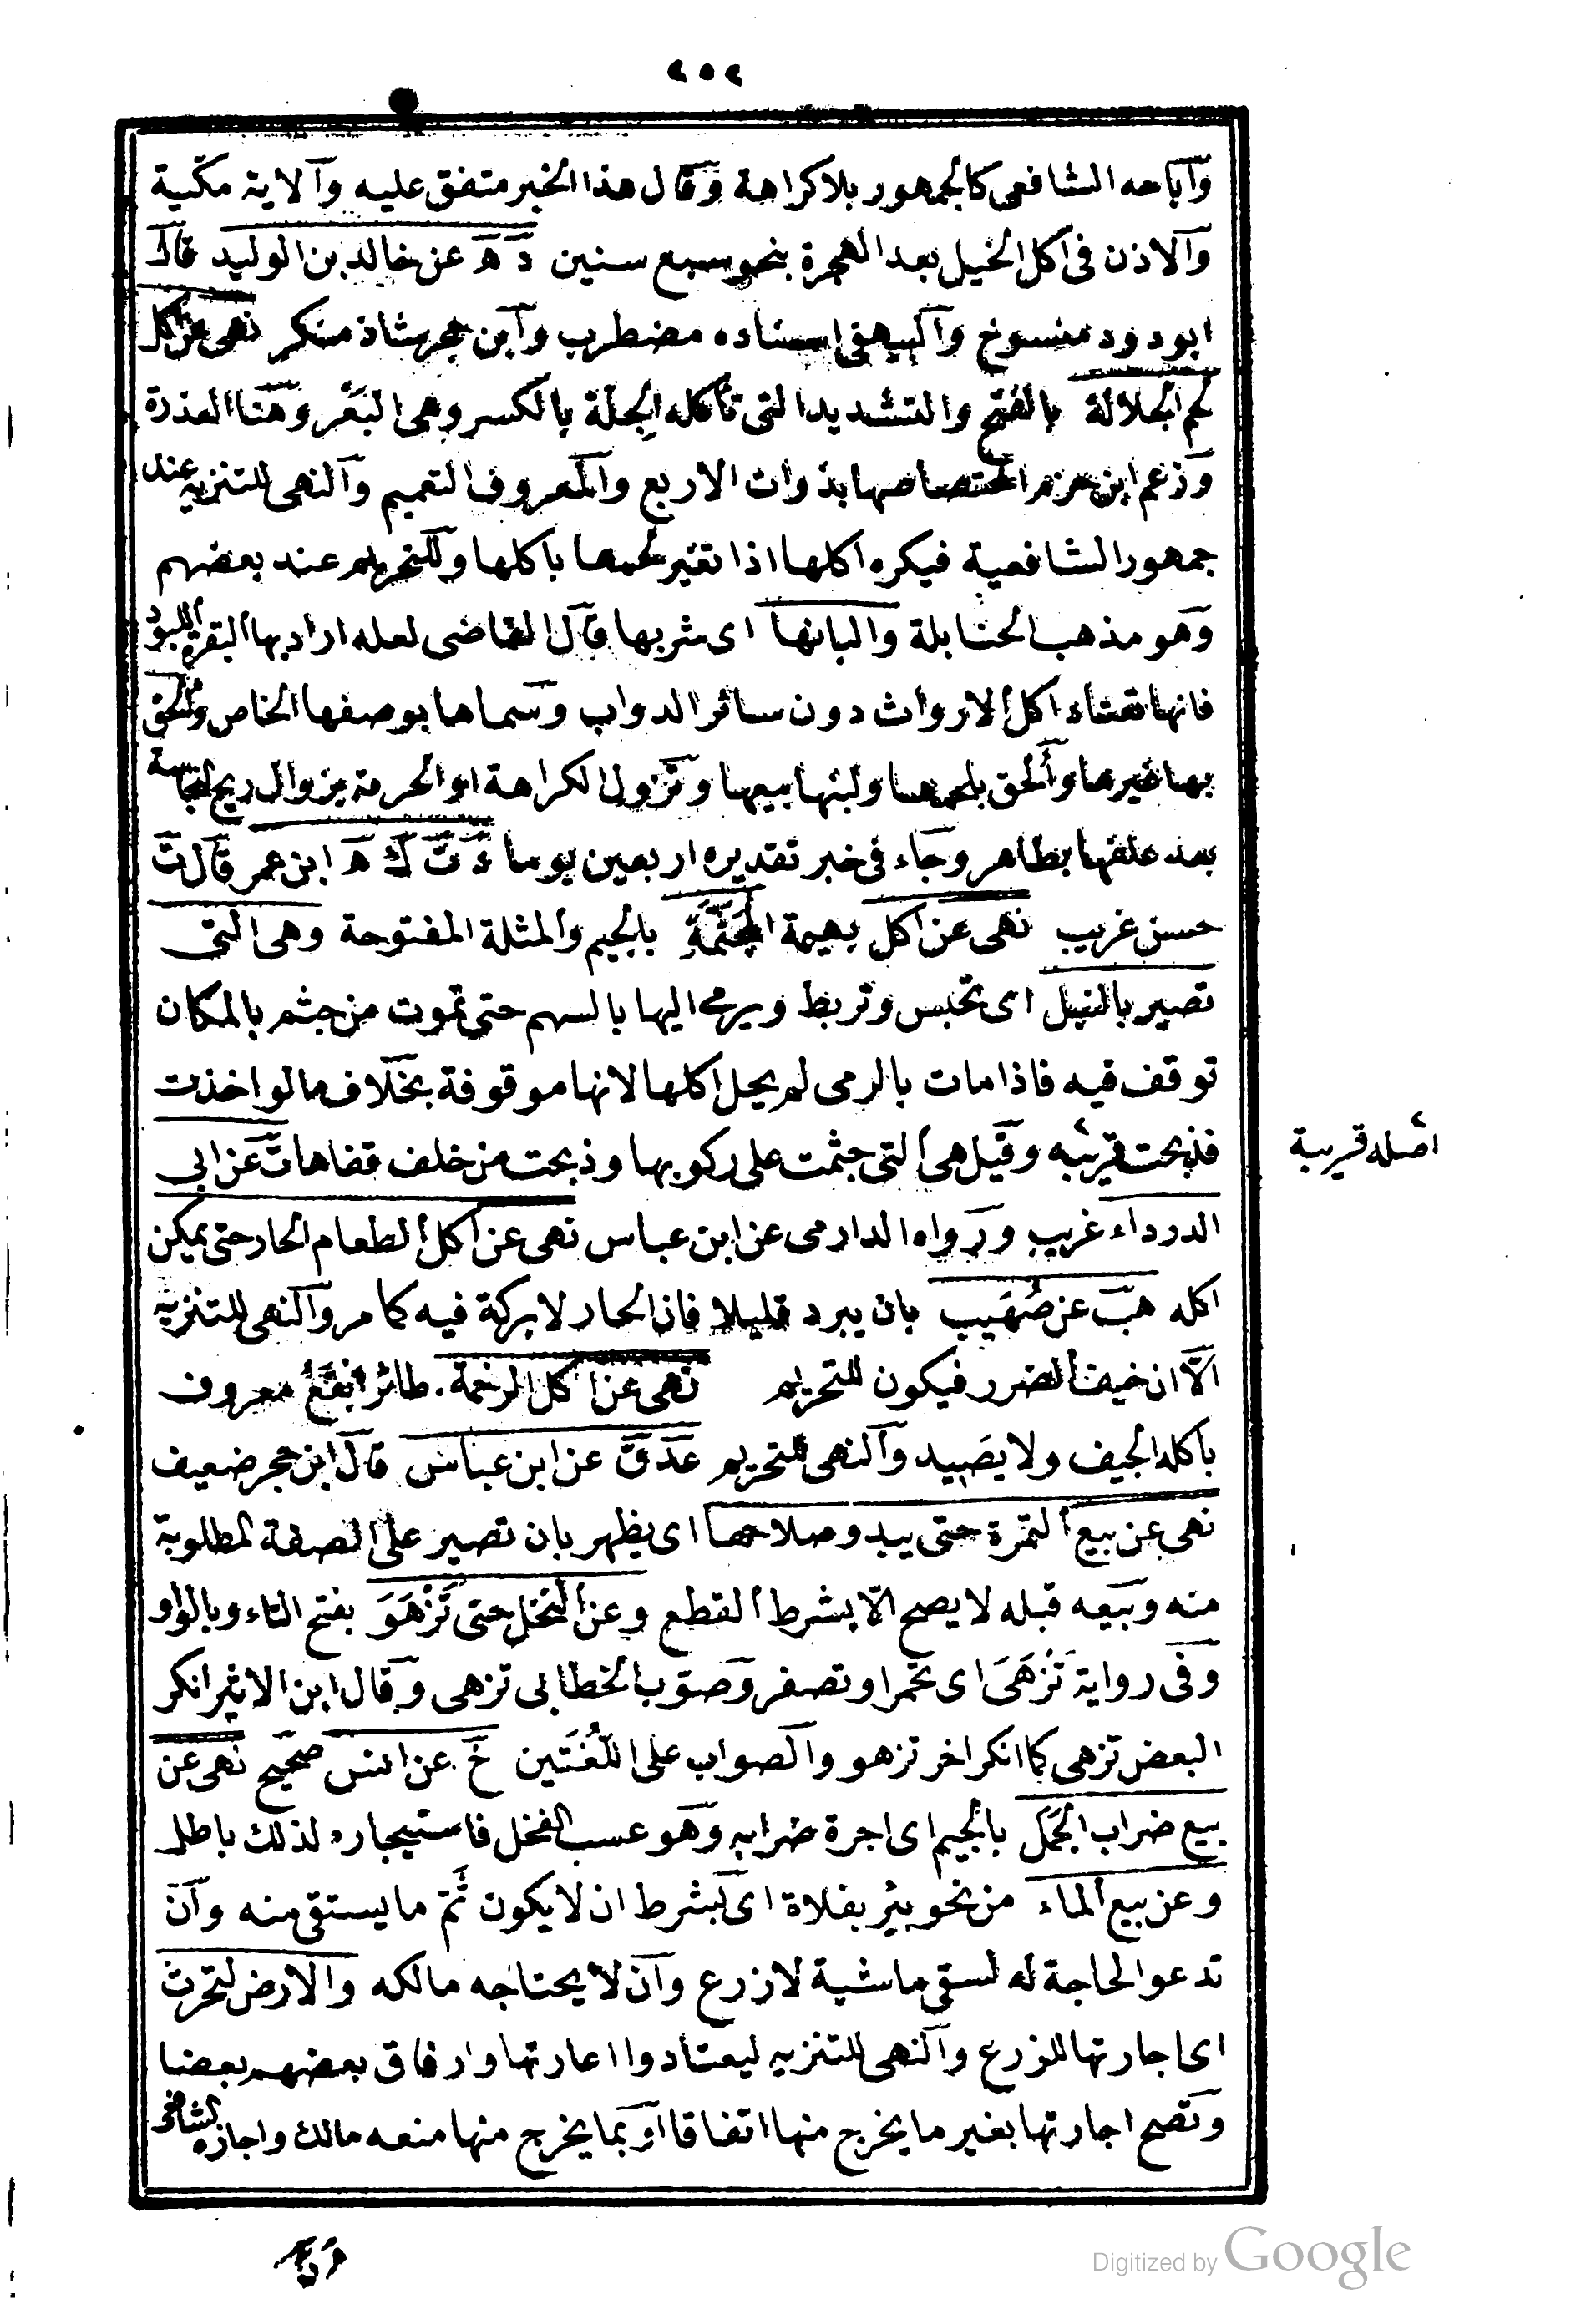 ٢٥٢
وآباحه الشافعى كالجمهور بلاكراهة وقال هذا الخبر متفق عليه وآلاية مكية
وآلاذن فى اكل الخيل بعد الهجرة بنحو سبع سنين دَ هَ عن خالد بن الوليد قال
ابو دود منسوخ وآلبيهقى اسناده مضطرب وآبن حجر شاذ منكر نهى عن اكل
لحم الجلالة بالفتح والتشديد التى تأكله الجِلّة بالكسر وهى البَعَر وهَنا العذرة
وزعم ابن حزم اختصاصها بذوات الاربع وآلمعروف التعميم وآلنهى للتنزيه عند
جمهور الشافعية فيكره اكلها اذا تغير لحمها باكلها وللتحريم عند بعضهم
وهو مذهب الحنابلة والبانها اى شربها قال القاضى لعله اراد بها البقرة اليهود
فانها تعتاد اكل الارواث دون سائر الدواب وسماها بوصفها الخاص وألحق
بها غيرها وأُلحق بلحمها ولبنها بيعها وتزول الكراهة او الحرمة بزوال ريح النجاسة
بعد علفها بطاهر وجاء فى خبر تقديره اربعين يوما دَ تَ كَ هَ ابن عمر قال تَ
حسن غريب نهى عن اكل بهيمة المُجَثَّمَةِ بالجيم والمثلة المفتوحة وهى التى
تصير بالنيل اى تحبس وتربط ويرمى اليها بالسهم حتى تموت من جثم بالمكان
توقف فيه فاذا مات بالرمى لم يحل اكلها لانها موقوفة بخلاف مالو اخذت
فذبحت قريبه وقيل هى التى جثمت على ركوبها وذبحت من خلف قفاها تَ عن ابى
الدرداء غريب ورواه الدارمى عن ابن عباس نهى عن اكل الطعام الحار حتى يمكن
اكله هبَ عن صُهَيب بان يبرد قليلا فان الحار لابركة فيه كما مر وآلنهى للتنزيه
الّا ان خيف الضرر فيكون للتحريم نهى عن اكل الرخمة . طائر أبقع معروف
باكله الجيف ولا يَصَيد وآلنهى للتحريم عَدَ قَ عن ابن عباس قال ابن حجر ضعيف
نهى عن بيع التمرة حتى يبدو صلاحها اى يظهر بان تصير على الصفة المطلوبة
منه وبيعه قبله لايصح الّا بشرط القطع وعن النخل حتى تَزْهَوَ بفتح التاء وبالواو
وفى رواية تَزهَىَ اى تحمر او تصفر وصوّب الخطابى تزهى وقال ابن الاثير انكر
البعض تزهى كما انكر اخر تزهو وآلصواب على اللُغَتَين خَ عن انس صحيح نهى عن
بيع ضراب الجَمَل بالجيم اى اجرة ضرابه وهو عسب الفحل فاستيجاره لذلك باطل
وعن بيع الماء من نحو بئر بفلاة اى بشرط ان لايكون ثَمّ ما يستقى منه وآن
تدعو الحاجة له لسقى ماشية لازرع وآن لا يحتاجه مالكه والارض لتحرث
اى اجارتها للزرع وآلنهى للتنزيه ليعتادوا اعارتها وارفاق بعضهم بعضا
وتصح اجارتها بغير ما يخرج منها اتفاقا آوبما يخرج منها منعه مالك واجازه الشافعى
اصله قريبة
Digitized by Google